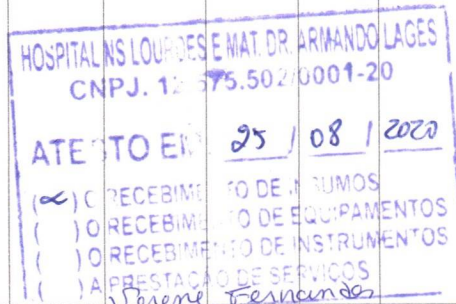 HOSPITAL NS LOURDES E MAT. DR. ARMANDO LAGES
CNPJ. 12.575.502/0001-20
ATESTO EM 25 / 08 / 2020
(x) O RECEBIMENTO DE INSUMOS
( ) O RECEBIMENTO DE EQUIPAMENTOS
( ) O RECEBIMENTO DE INSTRUMENTOS
( ) A PRESTAÇÃO DE SERVIÇOS
Fernandes